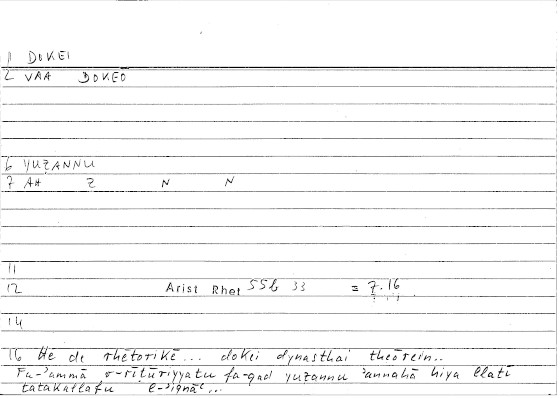 1 DOKEI
2 VAA DOKEO
6 YUẒANNU
7 AH Ẓ N N
11
12 Arist Rhet 55b 33 = 7.16
14
16 Hē de rhētorikē... dokei dynasthai theōrein..
Fa-ʾammā r-rīṭūrīyyatu fa-qad yuẓannu ʾannahā hiya llatī
tatakallafu l-ʾiqnāʿ...